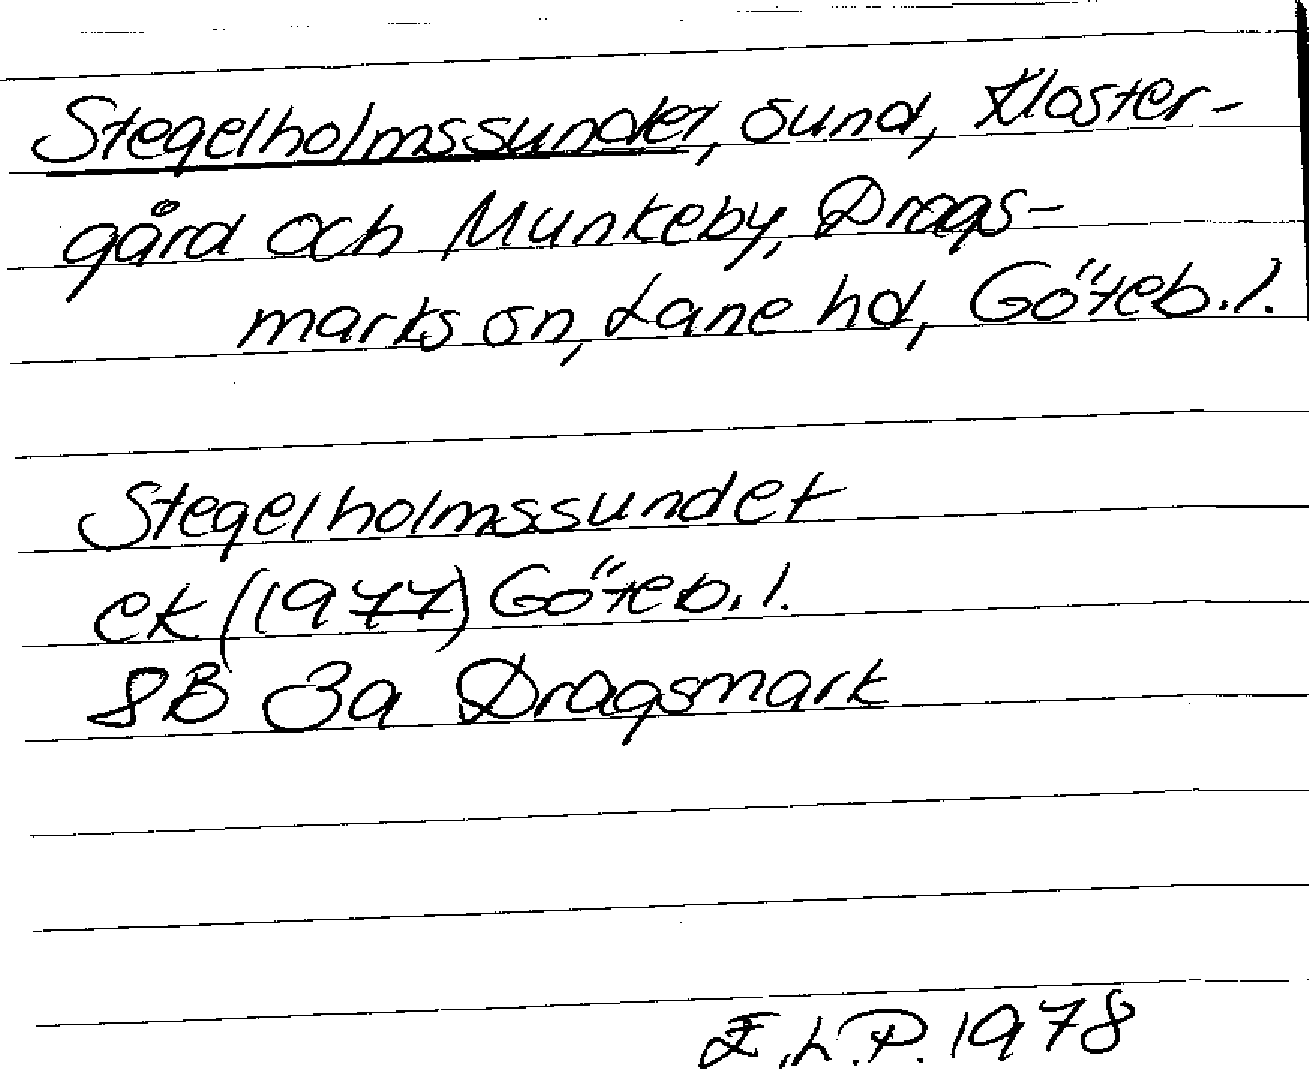 Stegelholmssundet, sund, Kloster-
gård och Munkeby, Drags-
marks sn, Lane hd, Göteb. l.
Stegelholmssundet
ek (1977) Göteb. l.
8B 3a Dragsmark
E.L.P. 1978